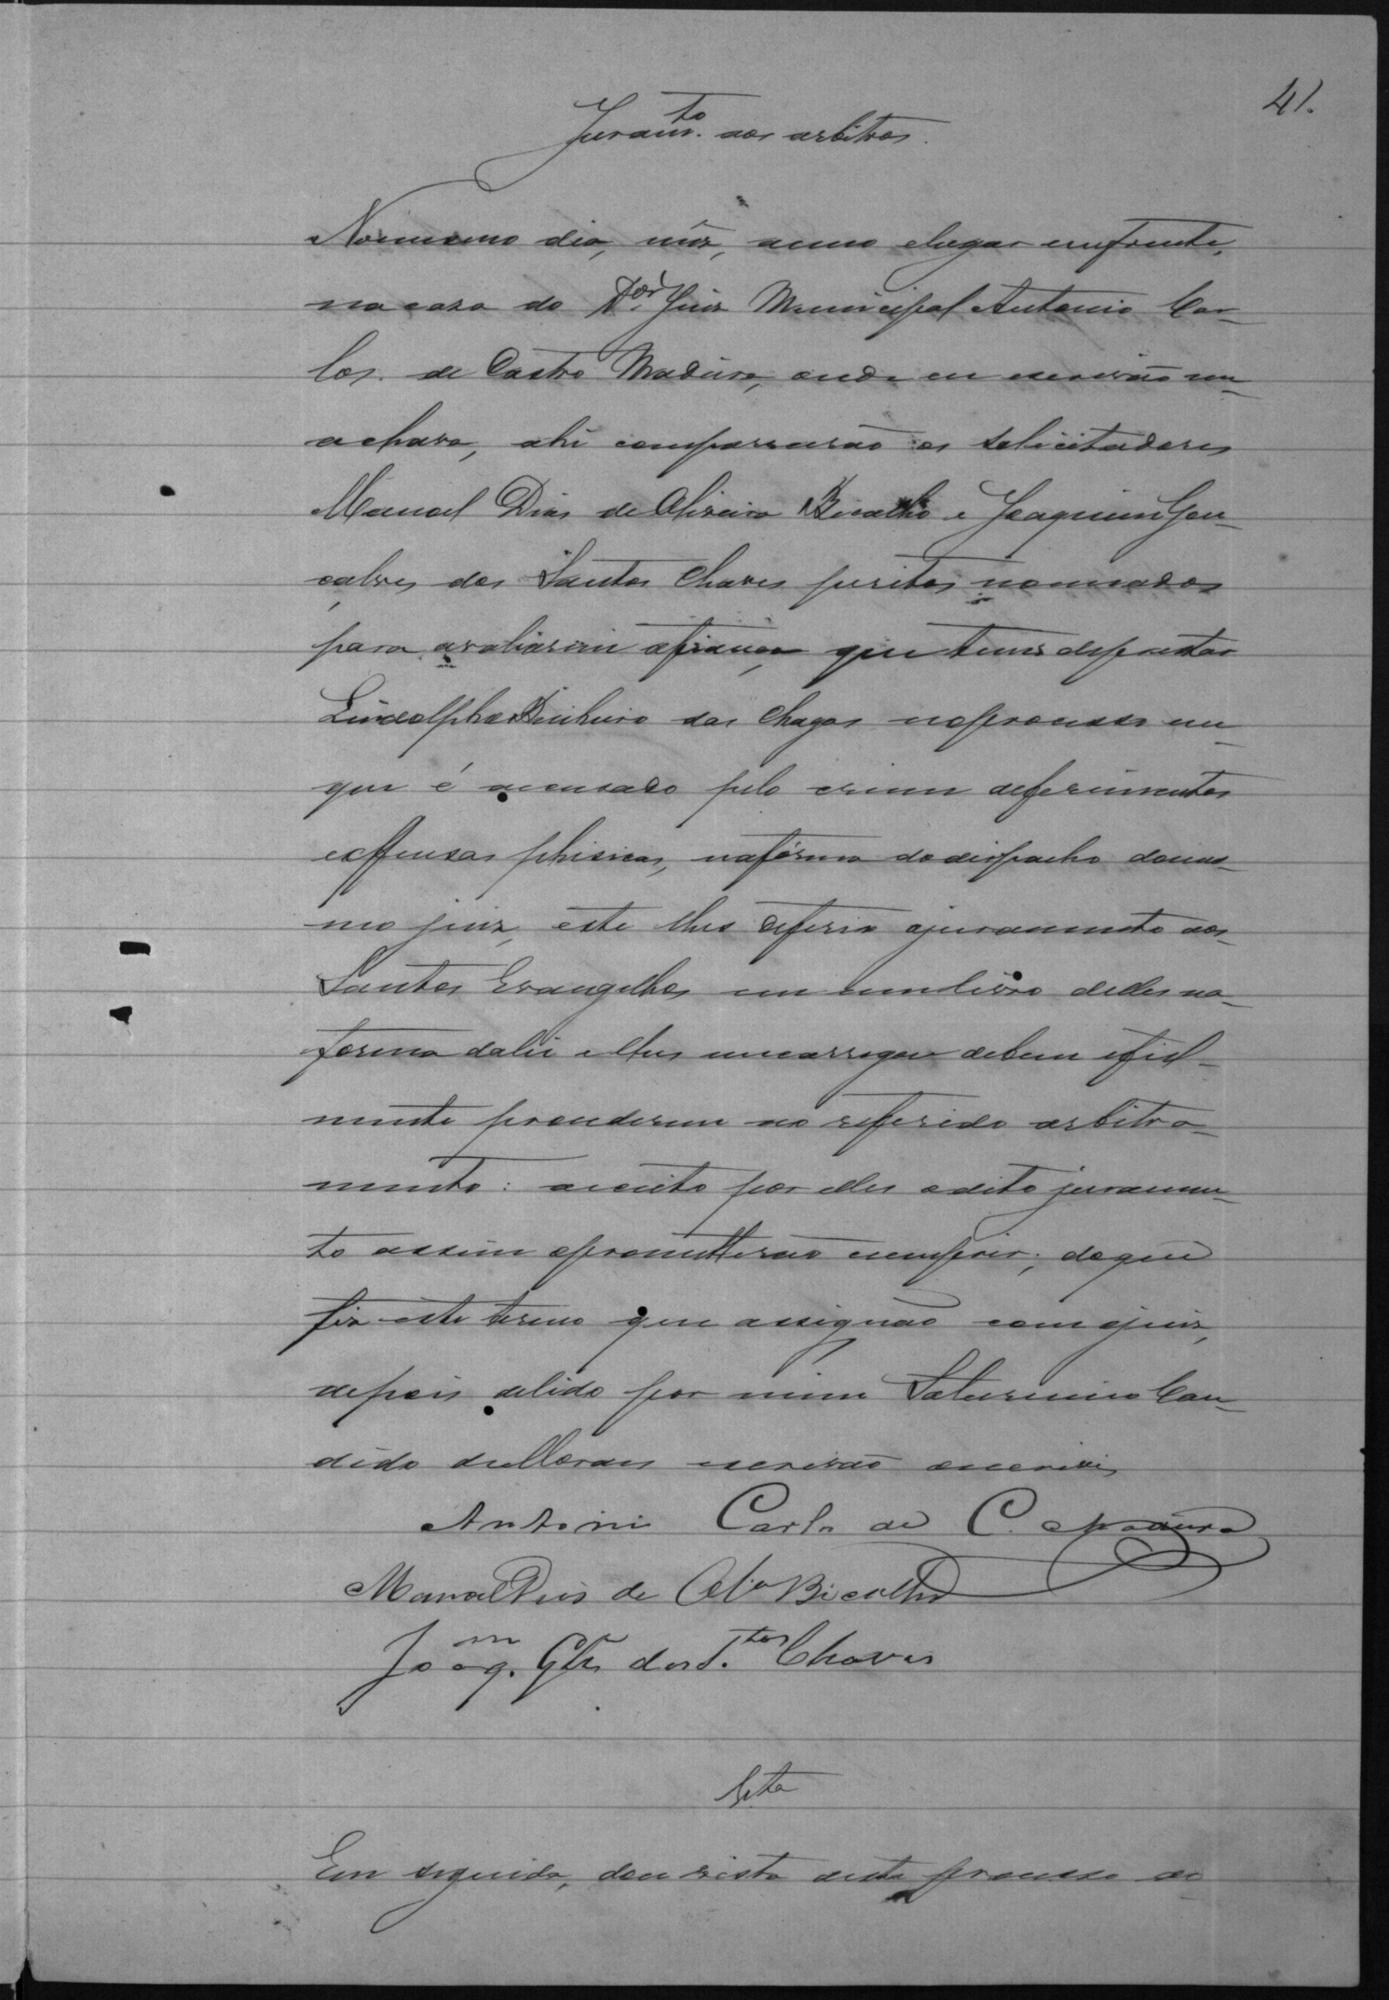 41.
Juram.to aos arbitros.
No mesmo dia, mez, anno elugar emfrente,
na casa do D.or Juiz Municipal Antonio Car-
los de Castro Madura, onde eu escrivão me
achava, ahi comparecerão os solicitadores
Manoel Dias de Oliveira Bicalho e Joaquim Gon-
çalves dos Santos Chaves peritos nomeados
para avaliarem afiança que tem deprestar
Lindolpho Pinheiro das Chagas noprocesso em
que é accusado pelo crime deferimentos
eoffensas phisicas, naforma dodespacho domes-
mo juiz, este lhes deferio ojuramento aos
Santos Evangelhos em umlivro delles na
forma dalei elhes encarregou debem efiel-
mente procederem ao referido arbitra-
mento: aceito por elles odito juramen-
to assim oprometterão cumprir; doque
fiz este termo que assignão com ojuiz,
depois delido por mim Saturnino Can-
dido escrivão oescrevi
Antonio Carlos de C. Madura
Manoel Dias de Olivra Bicalho
Joaqm. Glz dos S.tos Chaves
Em seguida, dou vista deste processo ao